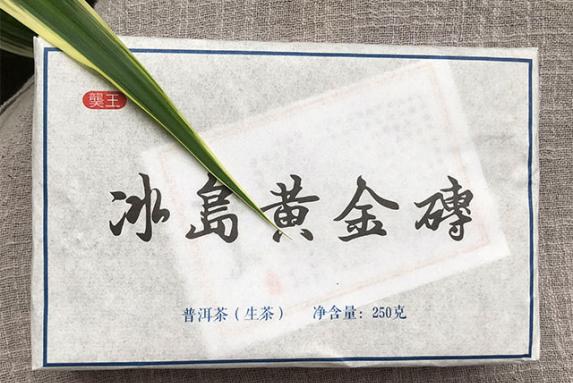 龔王
冰島黄金磚
普洱茶（生茶） 净含量：250克